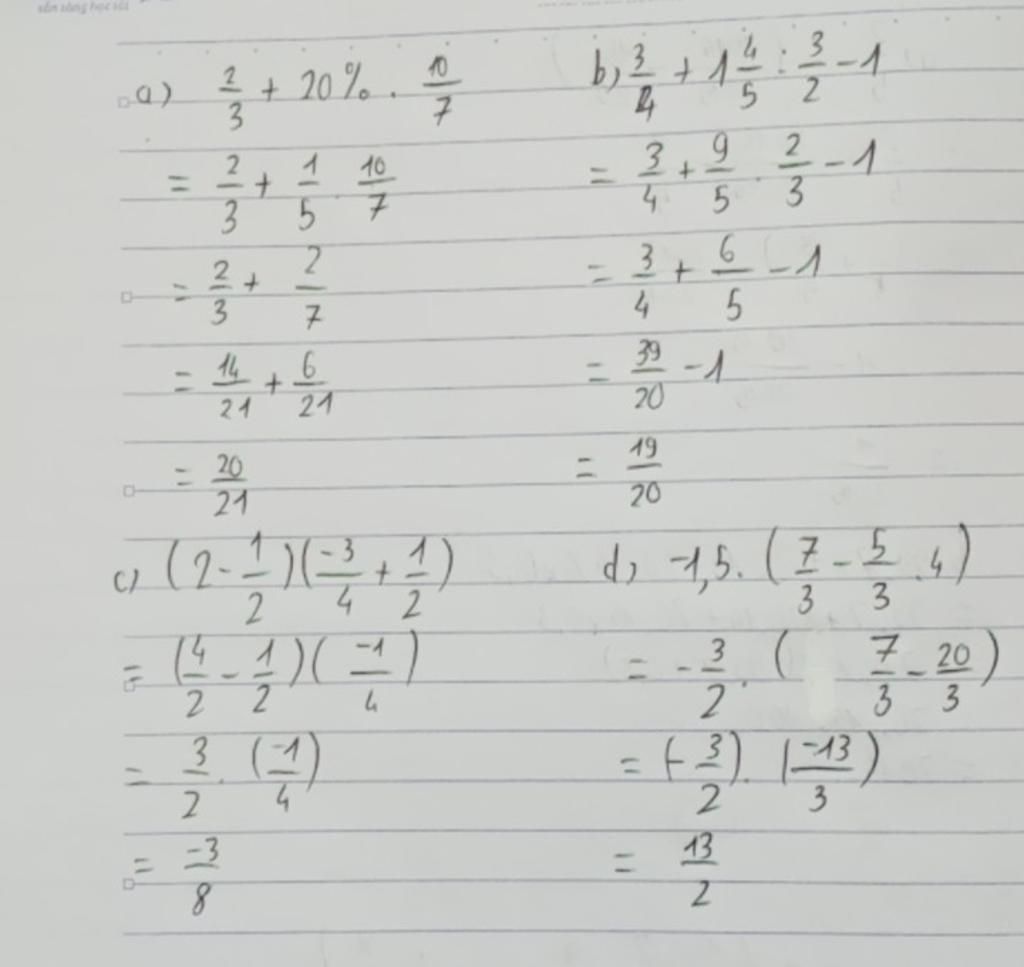 sẵn sàng học tốt
a) 2/3 + 20% . 10/7
= 2/3 + 1/5 . 10/7
= 2/3 + 2/7
= 14/21 + 6/21
= 20/21
b) 3/4 + 1 4/5 : 3/2 - 1
= 3/4 + 9/5 . 2/3 - 1
= 3/4 + 6/5 - 1
= 39/20 - 1
= 19/20
c) (2 - 1/2)(-3/4 + 1/2)
= (4/2 - 1/2)(-1/4)
= 3/2 . (-1/4)
= -3/8
d) -1,5 . (7/3 - 5/3 . 4)
= -3/2 . (7/3 - 20/3)
= (-3/2) . (-13/3)
= 13/2